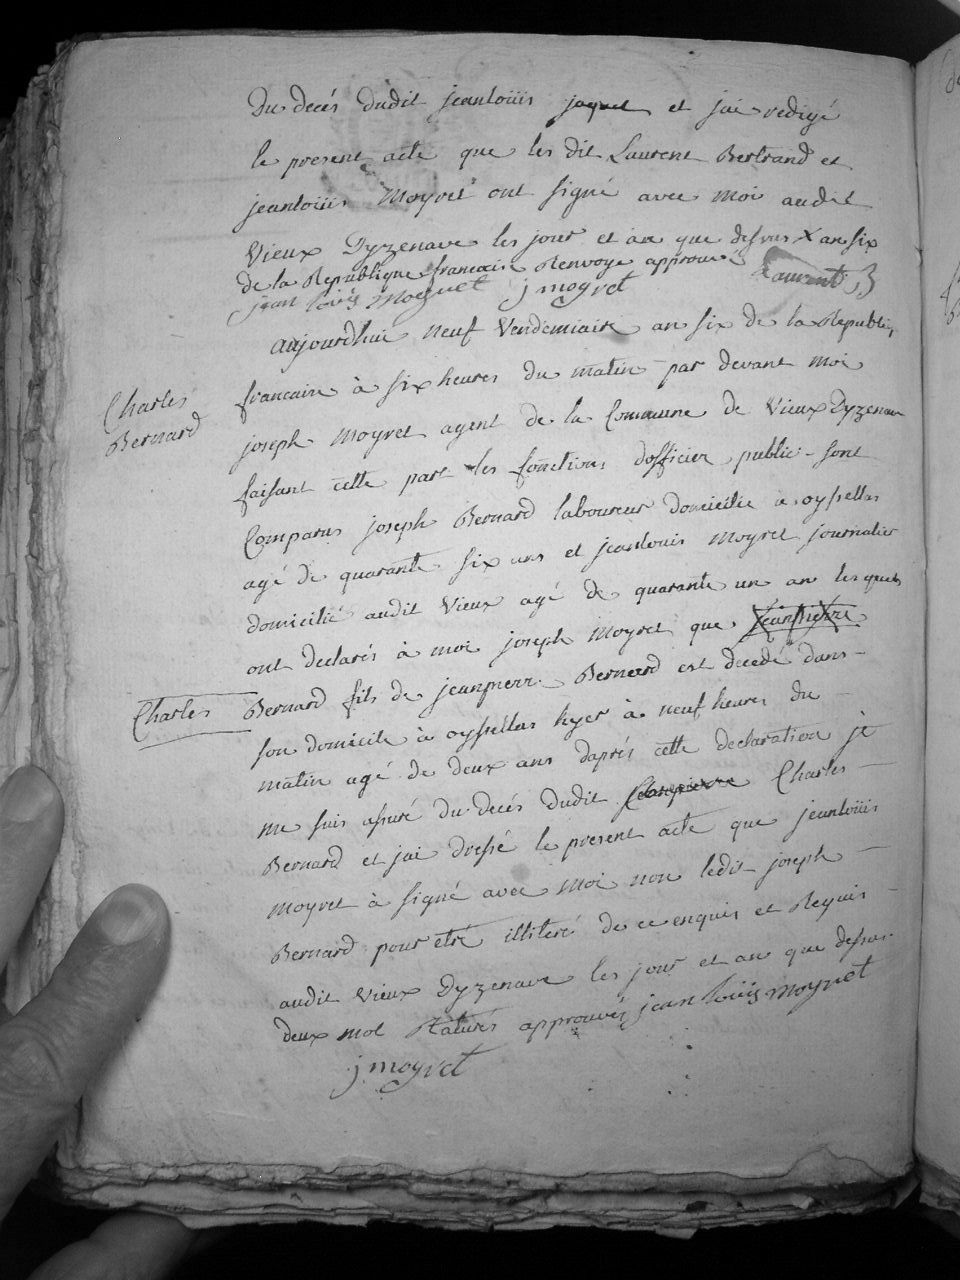 Du decés dudit jeanloüis jaquet et jai redigé
le present acte que les dit Laurent Bertrand et
jeanloüis Moyret ont signé avec moi audit
Vieux Dyzenave les jour et an que dessus X an six
de la Republique francaise Renvoye approuvé Laurent B
jean loüis Moyret j moyret
aujourdhui neuf Vendemiaire an six de la Republiq
francaise à six heures du matin par devant moi
Charles
Bernard
joseph Moyret agent de la Commune de Vieux Dyzenave
faisant cette part les fonctions dofficier public sont
Comparus joseph Bernard laboureur domicilié à oyssellas
agé de quarante six ans et jeanlouis Moyret journalier
domicilié audit Vieux agé de quarante un an lesquels
ont declarés à moi joseph Moyret que jeanpierre
Charles
Bernard fils de jeanpierre Bernard est decedé dans
son domicile à oyssellas hyer à neuf heures du
matin agé de deux ans daprés cette declaration je
me suis assuré du decés dudit jeanpierre Charles
Bernard et jai dressé le present acte que jeanloüis
moyret à signé avec moi non ledit joseph
Bernard pour etre illiteré de ce enquis et Requis
audit Vieux Dyzenave les jour et an que dessus
deux mot Raturés approuvés jean loüis moyret
j moyret